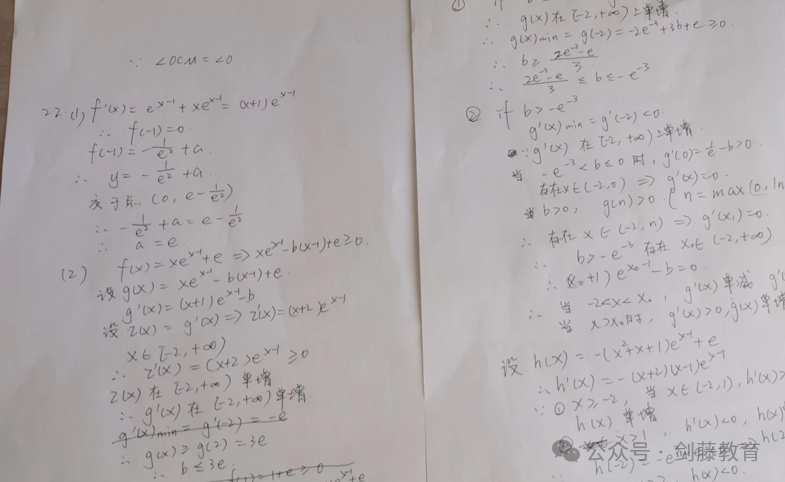 ∵ ∠OCM = ∠O
22.(1) f'(x) = e^{x-1} + xe^{x-1} = (x+1)e^{x-1}
∴ f(-1) = 0.
f(-1) = -1/e² + a.
∴ y = -1/e² + a.
交于点.. (0, e - 1/e²)
∴ -1/e² + a = e - 1/e²
∴ a = e.
(2) f(x) = xe^{x-1} + e ⇒ xe^{x-1} - b(x-1) + e ≥ 0.
设 g(x) = xe^{x-1} - b(x-1) + e.
g'(x) = (x+1)e^{x-1} - b
设 z(x) = g'(x) ⇒ z'(x) = (x+2)e^{x-1}
x ∈ [-2, +∞)
∴ z'(x) = (x+2)e^{x-1} ≥ 0
z(x) 在 [-2, +∞) 单增
∴ g'(x) 在 [-2, +∞) 单增
g'(x)min = g'(-2) = -e
∴ g(x) ≥ g(2) = 3e
∴ b ≤ 3e.
f(1) = 1+e ≥ 0
① if
∴ g(x) 在 [-2, +∞) 上单增.
∴ g(x)min = g(-2) = -2e^{-3} + 3b + e ≥ 0.
∴ b ≥ (2e^{-3} - e)/3
∴ (2e^{-3} - e)/3 ≤ b ≤ -e^{-3}
② if b > -e^{-3}
g'(x)min = g'(-2) < 0.
∵ g'(x) 在 [-2, +∞) 上单增.
当 -e^{-3} < b ≤ 0 时, g'(0) = 1/e - b > 0.
存在 x ∈ (-2, 0) ⇒ g'(x) = 0.
当 b > 0, g(n) > 0 { n = max(0, ln
∴ 存在 x ∈ (-2, n) ⇒ g'(x₁) = 0.
∴ b > -e^{-3} 存在 x₀ ∈ (-2, +∞)
∴ (x₀+1)e^{x₀-1} - b = 0.
∴ 当 -2 < x < x₀, g'(x) 单减 g'(
当 x > x₀ 时, g'(x) > 0, g(x) 单增
设 h(x) = -(x²+x+1)e^{x-1} + e
∴ h'(x) = -(x+2)(x-1)e^{x-1}
∵ ① x ≥ -2, 当 x ∈ (-2, 1), h'(x) >
h(x) 单增
x > 1, h'(x) < 0, h(x)
h(-2) = -e
h(x) < 0.
公众号 · 剑藤教育